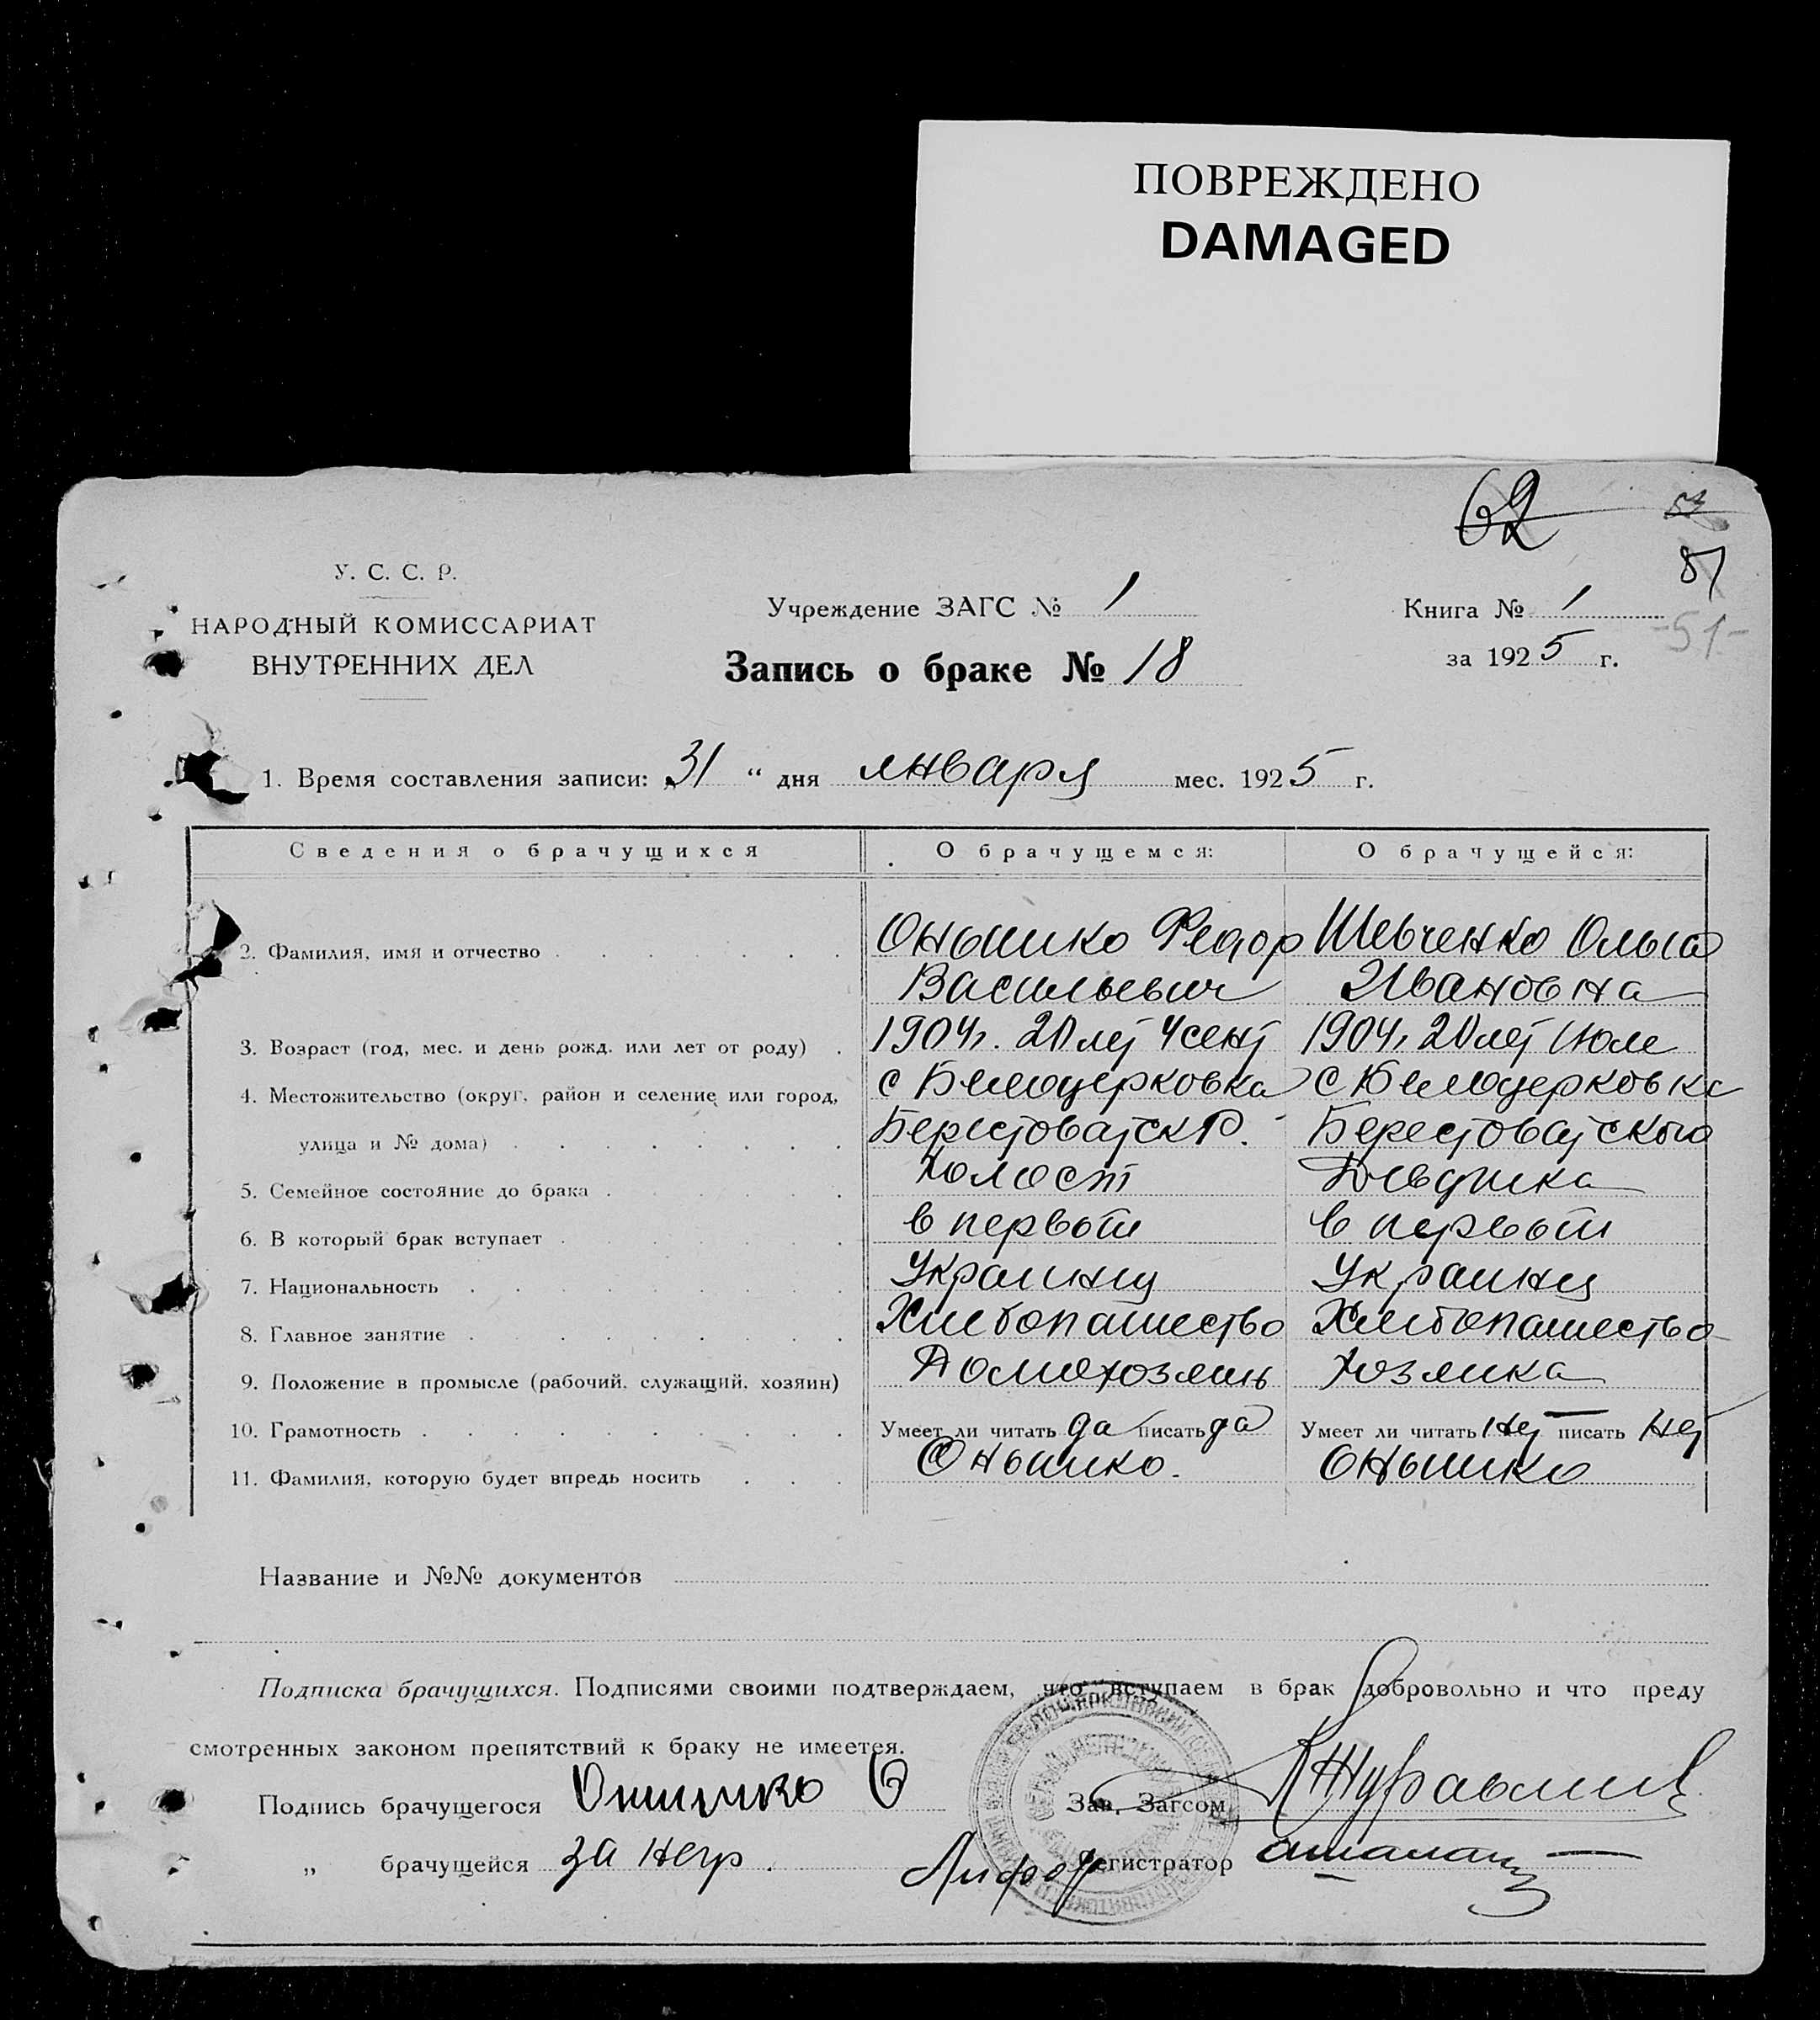 ПОВРЕЖДЕНО
DAMAGED
62
81
-51-
У. С. С. Р.
НАРОДНЫЙ КОМИССАРИАТ
ВНУТРЕННИХ ДЕЛ
Учреждение ЗАГС № 1
Запись о браке № 18
Книга № 1
за 1925 г.
1. Время составления записи: „31 “ дня января мес. 1925 г.
Сведения о брачущихся О брачущемся: О брачущейся:
2. Фамилия, имя и отчество Онышко Федор Шевченко Ольга
Васильевич Ивановна
3. Возраст (год, мес. и день рожд. или лет от роду) 1904г. 20 лет 4 сент 1904г 20 лет Июле
4. Местожительство (округ, район и селение или город, с Билоцерковка с Билоцерковка
улица и № дома) БерестоватскР. Берестоватского
5. Семейное состояние до брака холост Девушка
6. В который брак вступает в первый в первый
7. Национальность Украинец Украинец
8. Главное занятие Хлебопашество Хлебопашество
9. Положение в промысле (рабочий, служащий, хозяин) Домохозяин Хозяйка
10. Грамотность Умеет ли читать да писать да Умеет ли читать Нет писать Нет
11. Фамилия, которую будет впредь носить Онышко. Онышко
Название и №№ документов
Подписка брачущихся. Подписями своими подтверждаем, что вступаем в брак добровольно и что преду
смотренных законом препятствий к браку не имеется.
Подпись брачущегося Онышко Зав. Загсом
„ брачущейся за негр. Регистратор